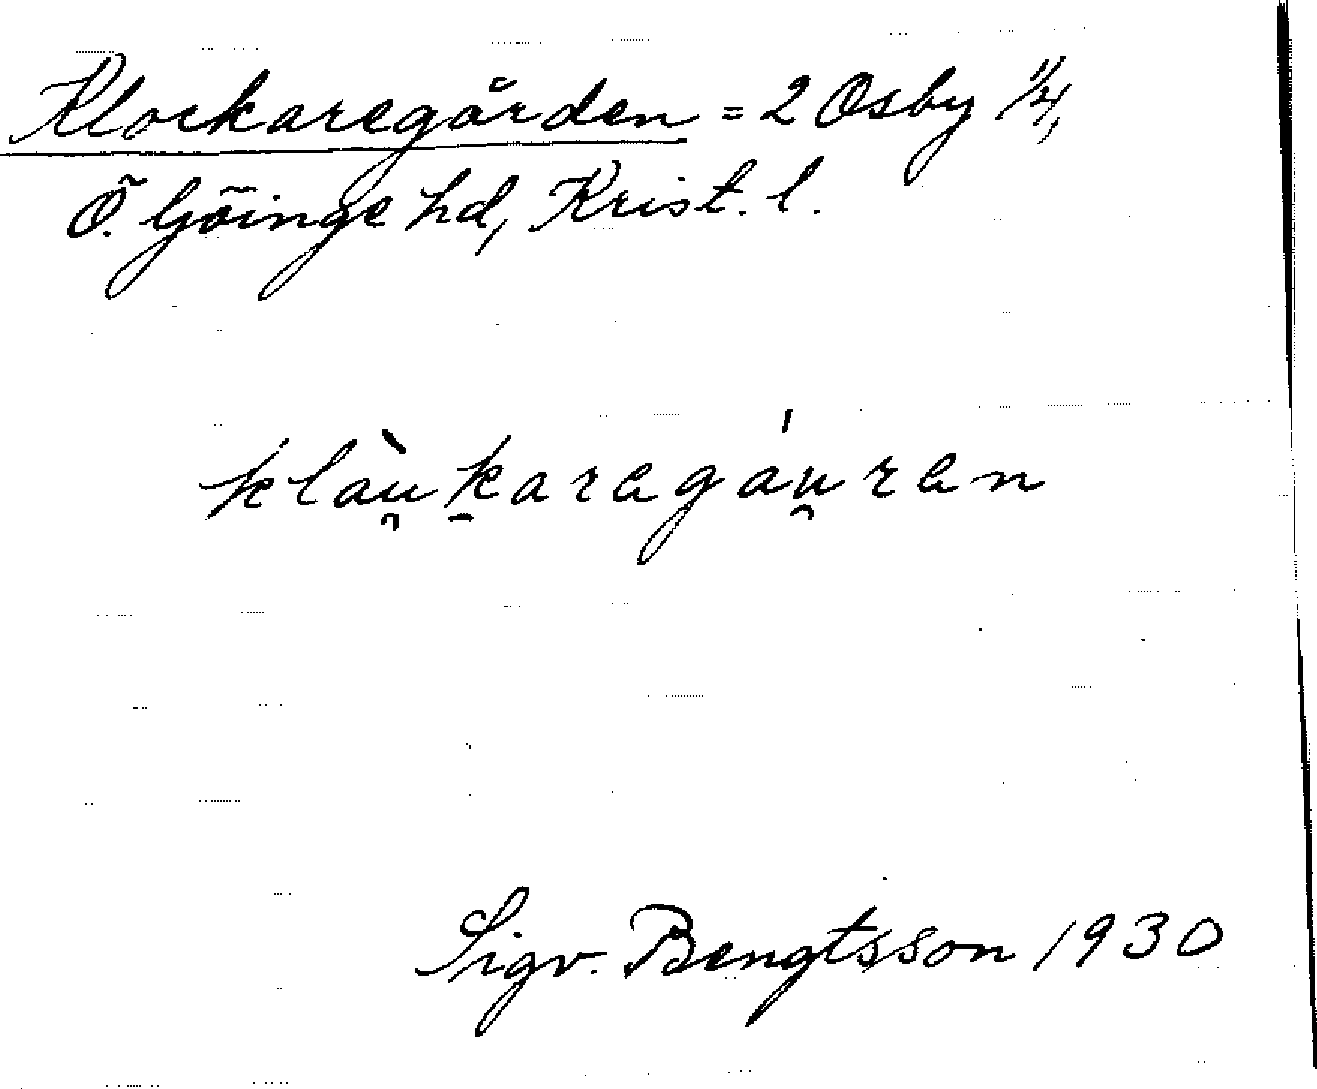 Klockaregården = 2 Osby 1/4,
Ö. Göinge hd, Krist. l.
klàu̯k̠aragáu̯ran
Sigv. Bengtsson 1930